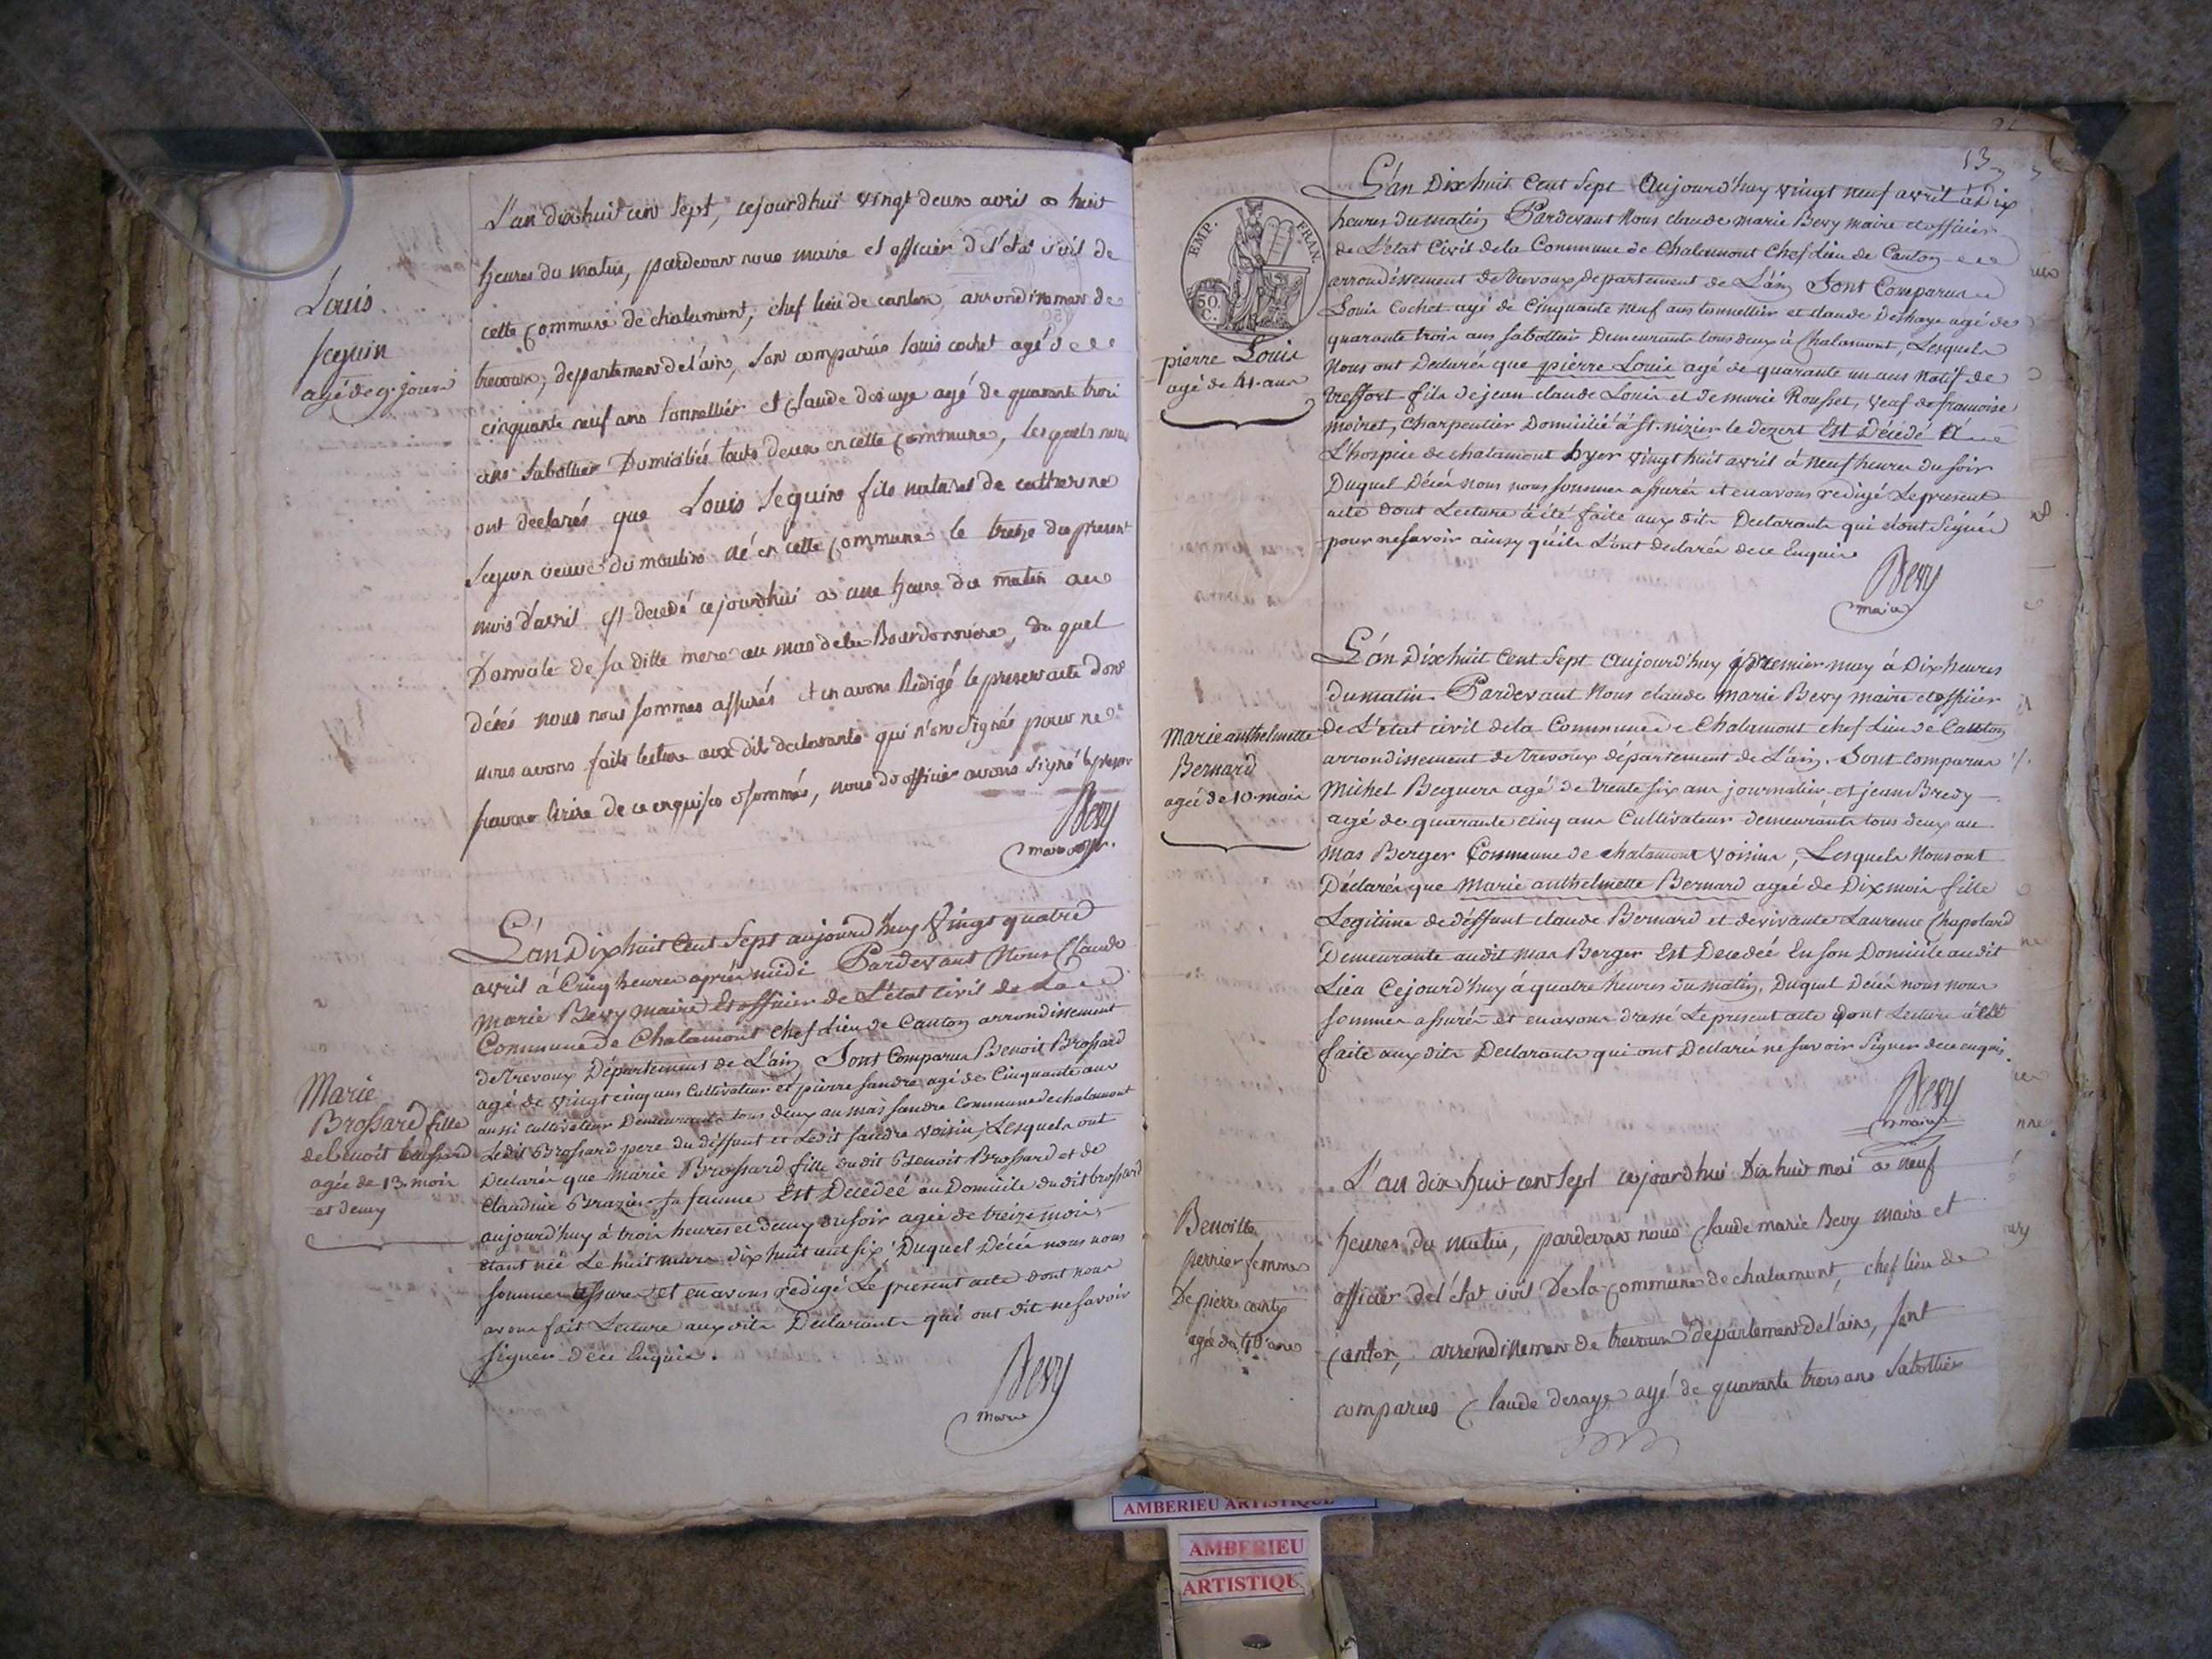 L'an dix huit cent sept, cejourdhui vingt deux avril a huit
heures du matin, pardevant nous maire et officier de l'état civil de
cette commune de chalamont, chef lieu de canton, arrondissement de
trevoux, departement de l'ain, sont comparus louis cochet agé de
cinquante neuf ans tonnellier et claude desaye agé de quarante trois
ans sabottier Domiciliés touts deux en cette commune, lesquels nous
ont declarés que Louis Seguin fils naturel de catherine
Seguin veuve du moulin né en cette commune le treize du present
mois d'avril est decedé cejourdhui a une heure du matin au
Domicile de sa ditte mere au mas de la Bourdonniere, du quel
décés nous nous sommes assurés et en avons Redigé le present acte dont
nous avons faits lecture aux dits declarants qui n'ont signés pour ne
scavoir écrire de ce enquis et sommés, nous do officier avons signé le present
Bevy
maire
Louis
Seguin
agé de 9. jours
L'an Dix huit Cent Sept aujourd'huy Vingt quatre
avril à Cinq heures après midi Pardevant Nous Claude
Marie Bevy maire Et officier de L'état Civil de La
Commune de Chalamont Chef Lieu de Canton arrondissement
de Trevoux Département de L'ain Sont Comparus Benoit Brossard
agé de vingt cinq ans Cultivateur et pierre sandre agé de Cinquante ans
aussi cultivateur Demeurants tous deux au mas sandre Commune de chalamont
Ledit Brossard pere du deffunt et Ledit sandre voisin, Lesquels ont
Declarés que Marie Brossard fille dudit Benoit Brossard et de
Claudine Brazier sa femme Est Decedeé au Domicile dudit brossard
aujourd'huy à trois heures et demy du soir ageé de treize mois
étant néé Le huit mars dix huit cent six, Duquel Décés nous nous
sommes assurés et en avons redigé Le present acte dont nous
avons fait Lecture aux dits Declarants qui ont dit ne savoir
signer dece Enquis.
Bevy
maire
Marie
Brossard fille
de benoit brossard
ageé de 13. mois
et demy
13
L'an Dix huit Cent Sept Aujourd'huy vingt neuf avril à Dix
heures du matin Pardevant Nous claude marie Bevy maire et officier
de L'état Civil de la Commune de Chalamont Chef Lieu de Canton
arrondissement de Trevoux departement de L'ain Sont Comparus
Louis Cochet agé de Cinquante neuf ans tonnellier et claude Deshaye agé de
quarante trois ans sabottier Demeurants tous deux à Chalamont, Lesquels
Nous ont Declarés que pierre Louis agé de quarante un ans Natif de
treffort fils de jean claude Louis et de marie Rousset, veuf de francoise
moiret, Charpentier Domicilié à st. nizier le dezert Est Décédé A
L'hospice de chalamont hyer vingt huit avril à neuf heures du soir
Duquel Décés nous nous sommes assurés et en avons redigé Le present
acte dont Lecture à été faite aux dits Declarants qui n'ont Signés
pour ne savoir ainsy qu'ils L'ont declarés dece Enquis
Bevy
maire
EMP. FRAN.
50
C.
pierre Louis
agé de 41. ans
L'an Dix huit Cent Sept aujourd'huy premier may à Dix heures
du matin. Pardevant Nous claude Marie Bevy maire et officier
de L'état civil de la Commune de Chalamont chef Lieu de Canton
arrondissement de trevoux département de L'ain. Sont Comparus
Michel Beguera agé de trente six ans journalier, et jean Bredy
agé de quarante cinq ans Cultivateur demeurants tous deux au
Mas Berger Commune de chalamont Voisins, Lesquels Nous ont
Déclarés que Marie anthelmette Bernard ageé de Dix mois fille
Legitime de déffunt claude Bernard et de vivante Laurence Chapolard
Demeurante audit mas Berger Est Decedeé En son Domicile audit
Lieu Cejourd'huy à quatre heures du matin, Duquel Décés nous nous
sommes assurés et en avons drassé Le present acte dont Lecture à été
faite aux dits Declarants qui ont Declarés ne savoir Signer dece enquis.
Bevy
maire
Marie anthelmette
Bernard
ageé de 10. mois
L'an dix huit cent sept cejourdhui Dix huit mai a neuf
heures du matin, pardevant nous Claude marie Bevy maire et
officier de l'état civil de la commune de chalamont, chef lieu de
canton, arrondissement de trevoux departement de l'ain, sont
comparus Claude desaye agé de quarante trois ans sabottier
Benoitte
perrier femme
De pierre
ageé de 40 ans
AMBERIEU ARTISTIQUE
AMBERIEU
ARTISTIQU